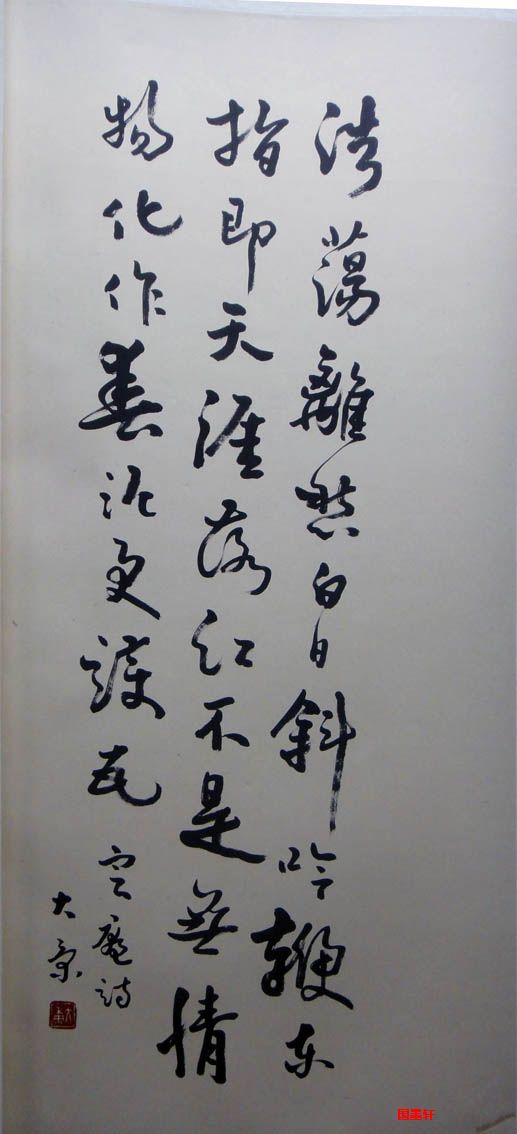 浩蕩離愁白日斜吟鞭東
指即天涯落紅不是無情
物化作春泥更護花
定庵詩
大
国墨轩